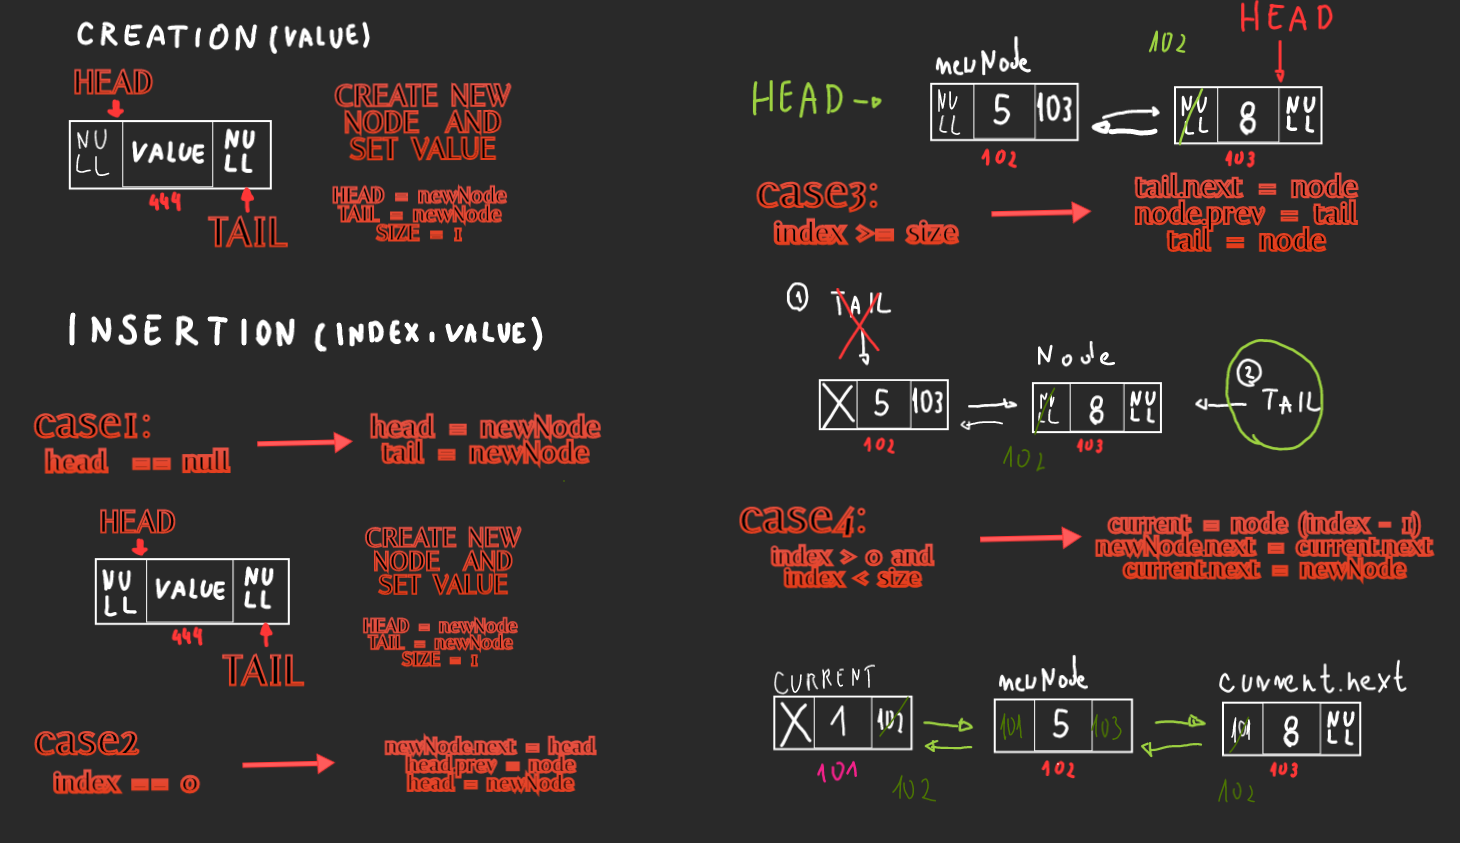 CREATION (VALUE)
HEAD
NU
LL
VALUE
NU
LL
444
TAIL
CREATE NEW
NODE AND
SET VALUE
HEAD = newNode
TAIL = newNode
SIZE = 1
INSERTION (INDEX, VALUE)
case1:
head == null
head = newNode
tail = newNode
HEAD
NU
LL
VALUE
NU
LL
444
TAIL
CREATE NEW
NODE AND
SET VALUE
HEAD = newNode
TAIL = newNode
SIZE = 1
case2
index == 0
newNode.next = head
head.prev = node
head = newNode
HEAD
102
newNode
HEAD
NU
LL
5
103
102
NU
LL
8
NU
LL
103
case3:
index >= size
tail.next = node
node.prev = tail
tail = node
1
TAIL
5
103
102
Node
NU
LL
8
NU
LL
102
103
2
TAIL
case4:
index > 0 and
index < size
current = node (index - 1)
newNode.next = current.next
current.next = newNode
CURRENT
1
102
101
102
newNode
101
5
103
102
current.next
101
8
NU
LL
102
103